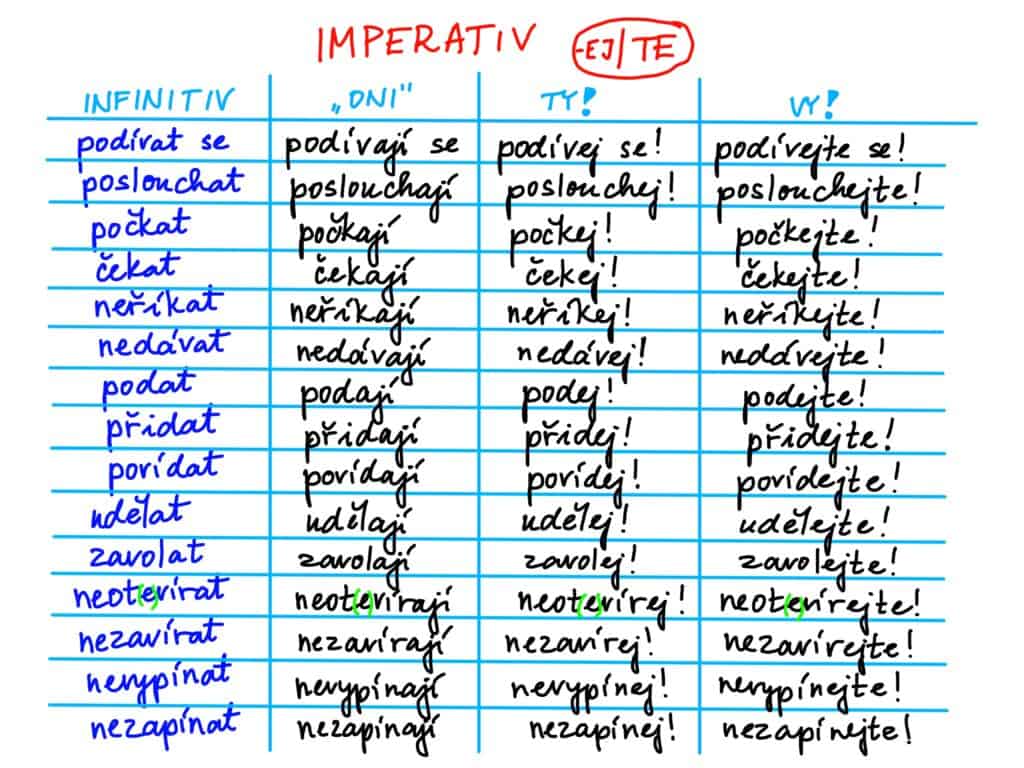 IMPERATIV -EJ/TE
INFINITIV „ONI" TY! VY!
podívat se podívají se podívej se! podívejte se!
poslouchat poslouchají poslouchej! poslouchejte!
počkat počkají počkej! počkejte!
čekat čekají čekej! čekejte!
neříkat neříkají neříkej! neříkejte!
nedávat nedávají nedávej! nedávejte!
podat podají podej! podejte!
přidat přidají přidej! přidejte!
povídat povídají povídej! povídejte!
udělat udělají udělej! udělejte!
zavolat zavolají zavolej! zavolejte!
neot(e)vírat neot(e)vírají neot(e)vírej! neot(e)vírejte!
nezavírat nezavírají nezavírej! nezavírejte!
nevypínat nevypínají nevypínej! nevypínejte!
nezapínat nezapínají nezapínej! nezapínejte!